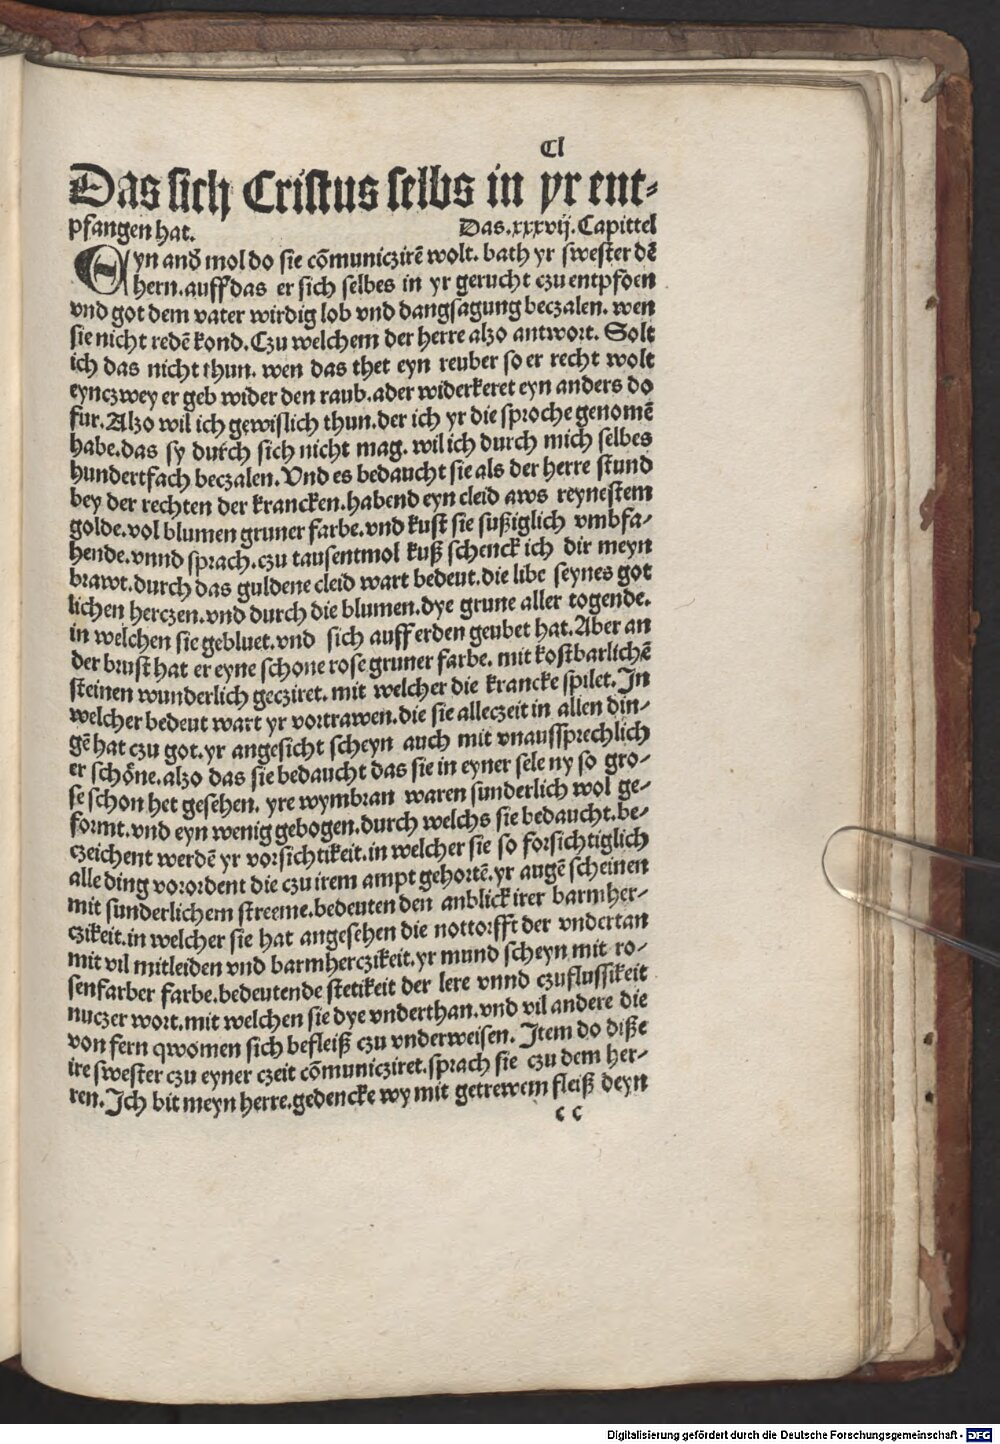 Cl
Das sich Cristus selbs in yr ent⸗
pfangen hat. Das.xxxvij.Capittel
Eyn anð mol do sie cõmuniczirẽ wolt. bath yr swester dẽ
hern.auff das er sich selbes in yr gerucht czu entpfoen
vnd got dem vater wirdig lob vnd dangsagung beczalen. wen
sie nicht redẽ kond. Czu welchem der herre alzo antwort. Solt
ich das nicht thun. wen das thet eyn reuber so er recht wolt
eynczwey er geb wider den raub.ader widerkeret eyn anders do
fur. Alzo wil ich gewislich thun.der ich yr die sproche genomẽ
habe.das sy durch sich nicht mag. wil ich durch mich selbes
hundertfach beczalen. Vnd es bedaucht sie als der herre stund
bey der rechten der krancken.habend eyn cleid aws reynestem
golde.vol blumen gruner farbe.vnd kust sie sußiglich vmbfa⸗
hende.vnnd sprach.czu tausentmol kuß schenck ich dir meyn
brawt.durch das guldene cleid wart bedeut.die libe seynes got
lichen herczen.vnd durch die blumen.dye grune aller togende.
in welchen sie gebluet.vnd sich auff erden geubet hat. Aber an
der brust hat er eyne schone rose gruner farbe. mit kostbarlichẽ
steinen wunderlich gecziret. mit welcher die krancke spilet. In
welcher bedeut wart yr vortrawen.die sie alleczeit in allen din⸗
gẽ hat czu got.yr angesicht scheyn auch mit vnaussprechlich
er schöne.alzo das sie bedaucht das sie in eyner sele ny so gro⸗
se schon het gesehen. yre wymbran waren sunderlich wol ge⸗
formt.vnd eyn wenig gebogen.durch welchs sie bedaucht.be⸗
czeichent werdẽ yr vorsichtikeit.in welcher sie so forsichtiglich
alle ding vorordent die czu irem ampt gehortẽ.yr augẽ scheinen
mit sunderlichem streeme.bedeuten den anblick irer barmher⸗
czikeit.in welcher sie hat angesehen die nottorfft der vndertan
mit vil mitleiden vnd barmherczikeit.yr mund scheyn mit ro⸗
senfarber farbe.bedeutende stetikeit der lere vnnd czuflussikeit
nuczer wort.mit welchen sie dye vnderthan.vnd vil andere die
von fern qwomen sich befleiß czu vnderweisen. Item do diße
ire swester czu eyner czeit cõmunicziret.sprach sie czu dem her⸗
ren. Ich bit meyn herre.gedencke wy mit getrewem fleiß deyn
c c
Digitalisierung gefördert durch die Deutsche Forschungsgemeinschaft - DFG